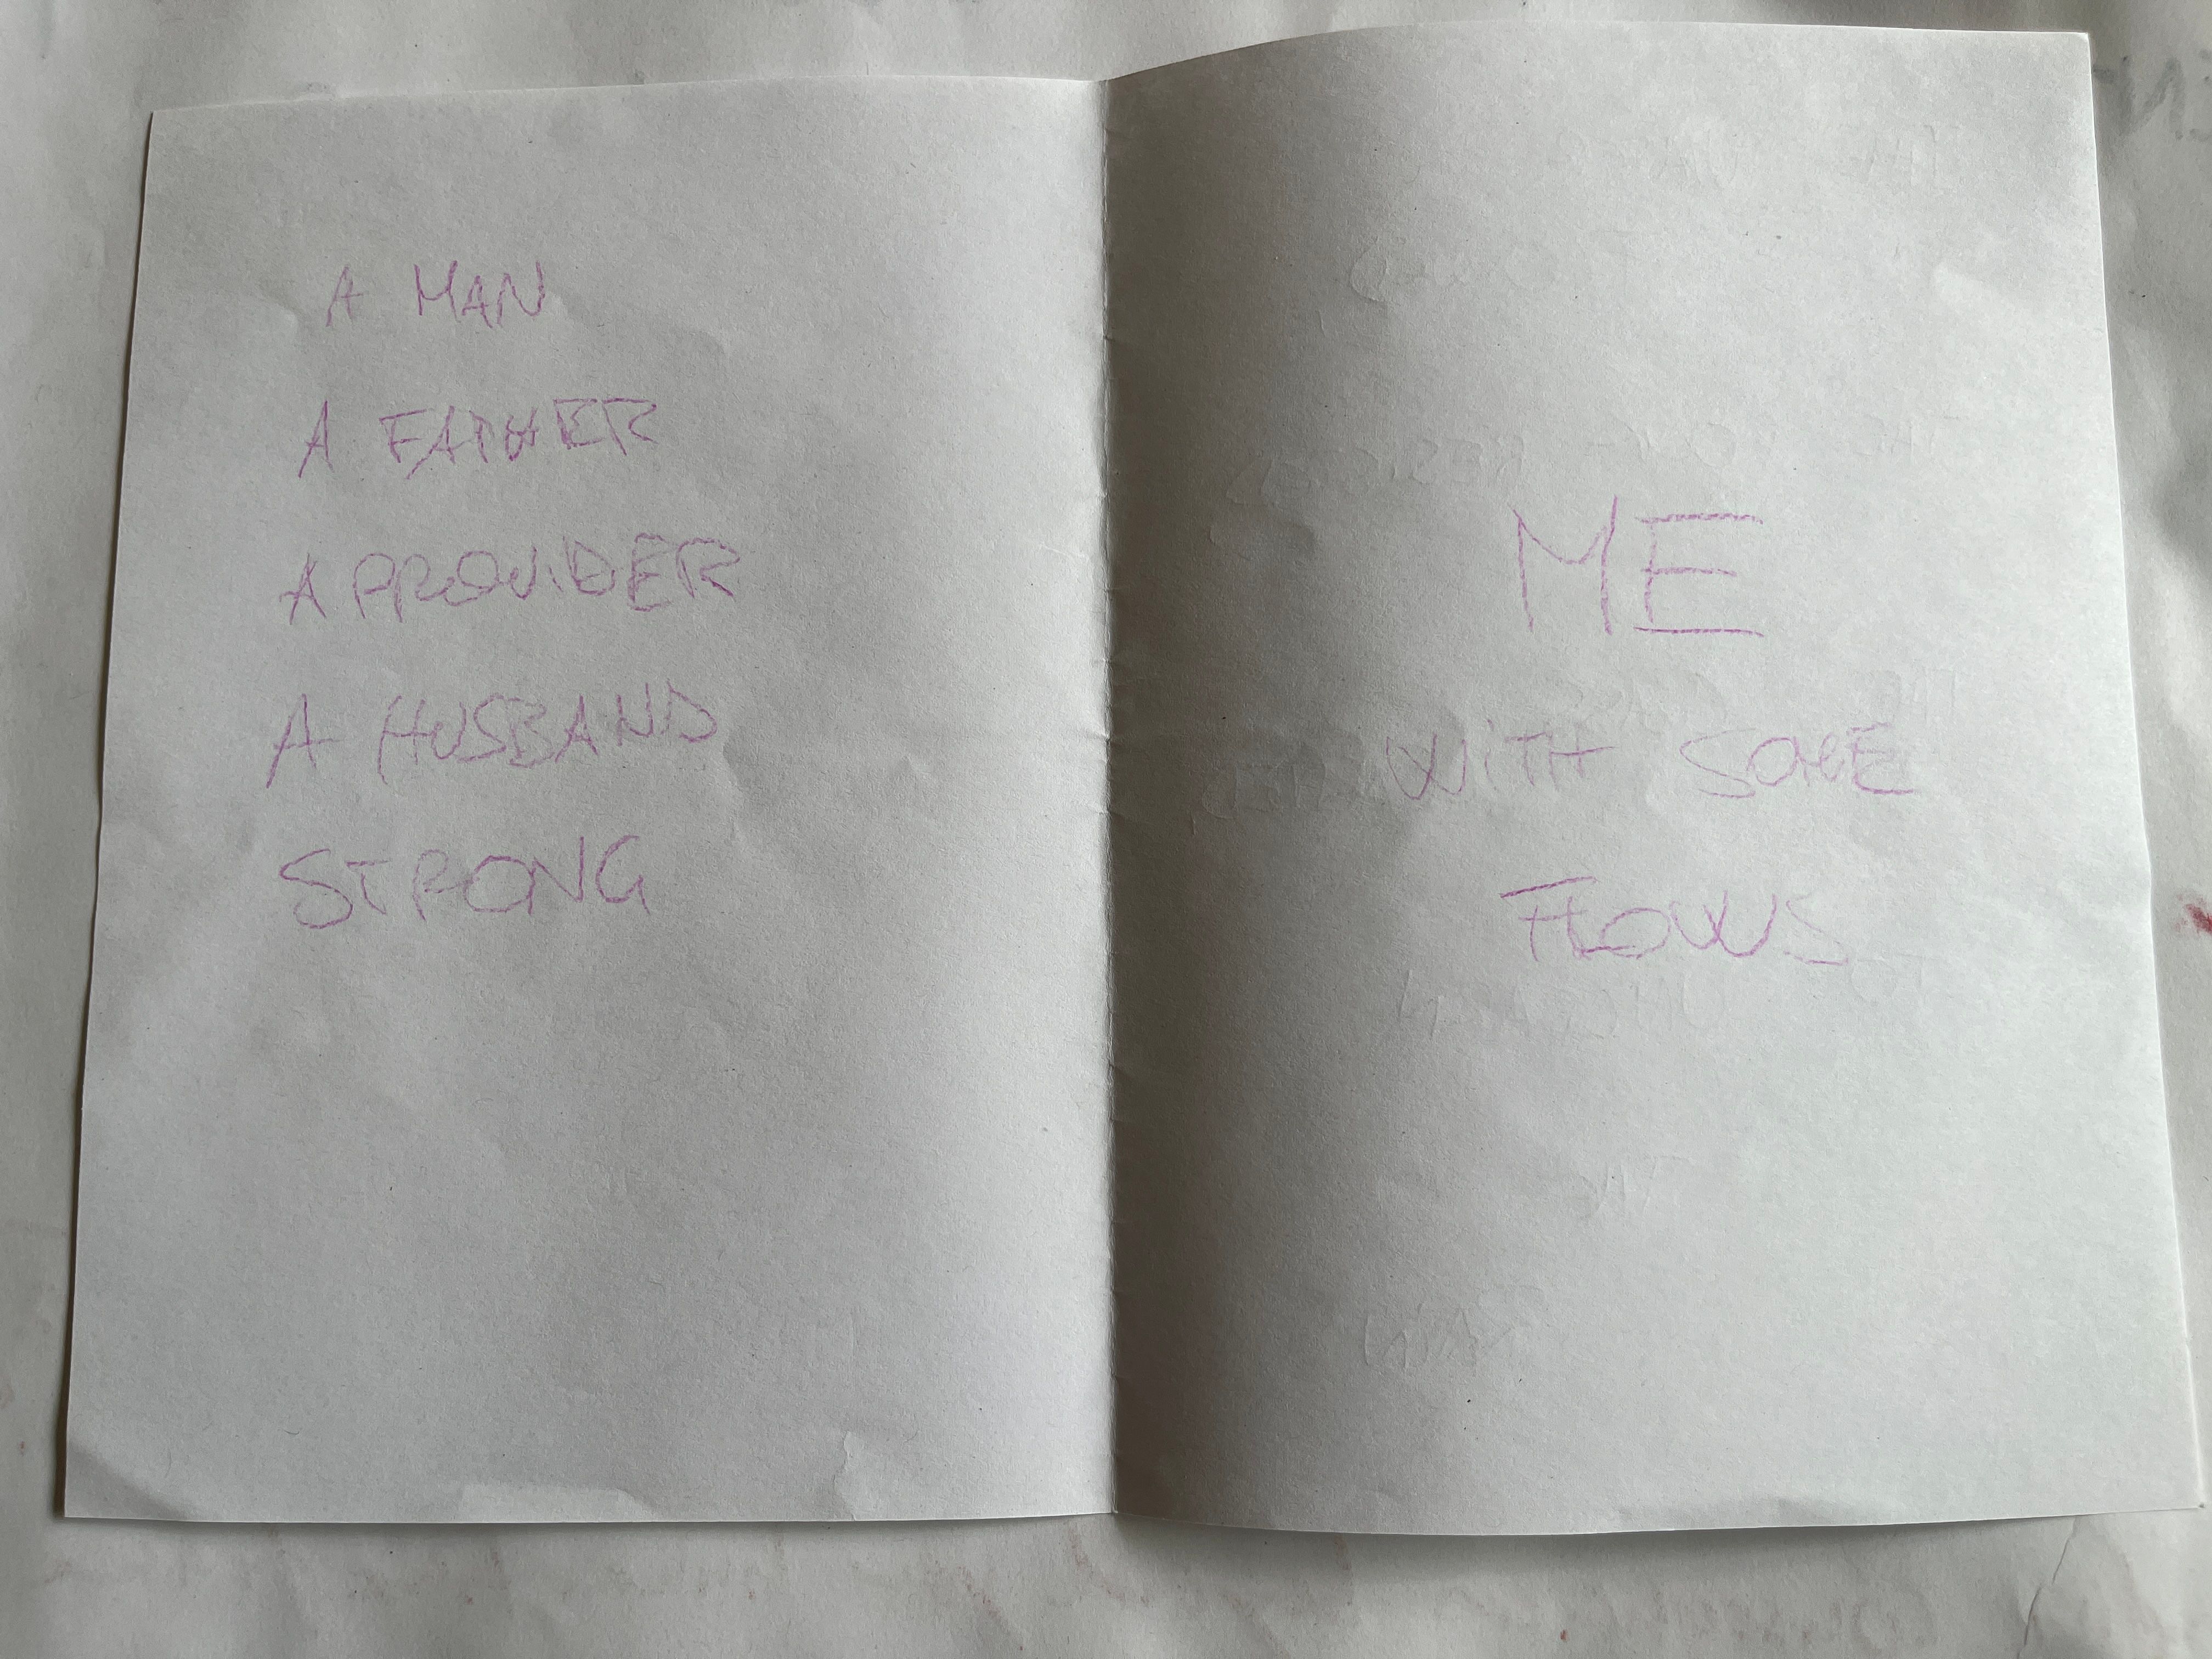 A MAN
A FATHER
A PROVIDER
A HUSBAND
STRONG
ME
WITH SOME
FLOWS